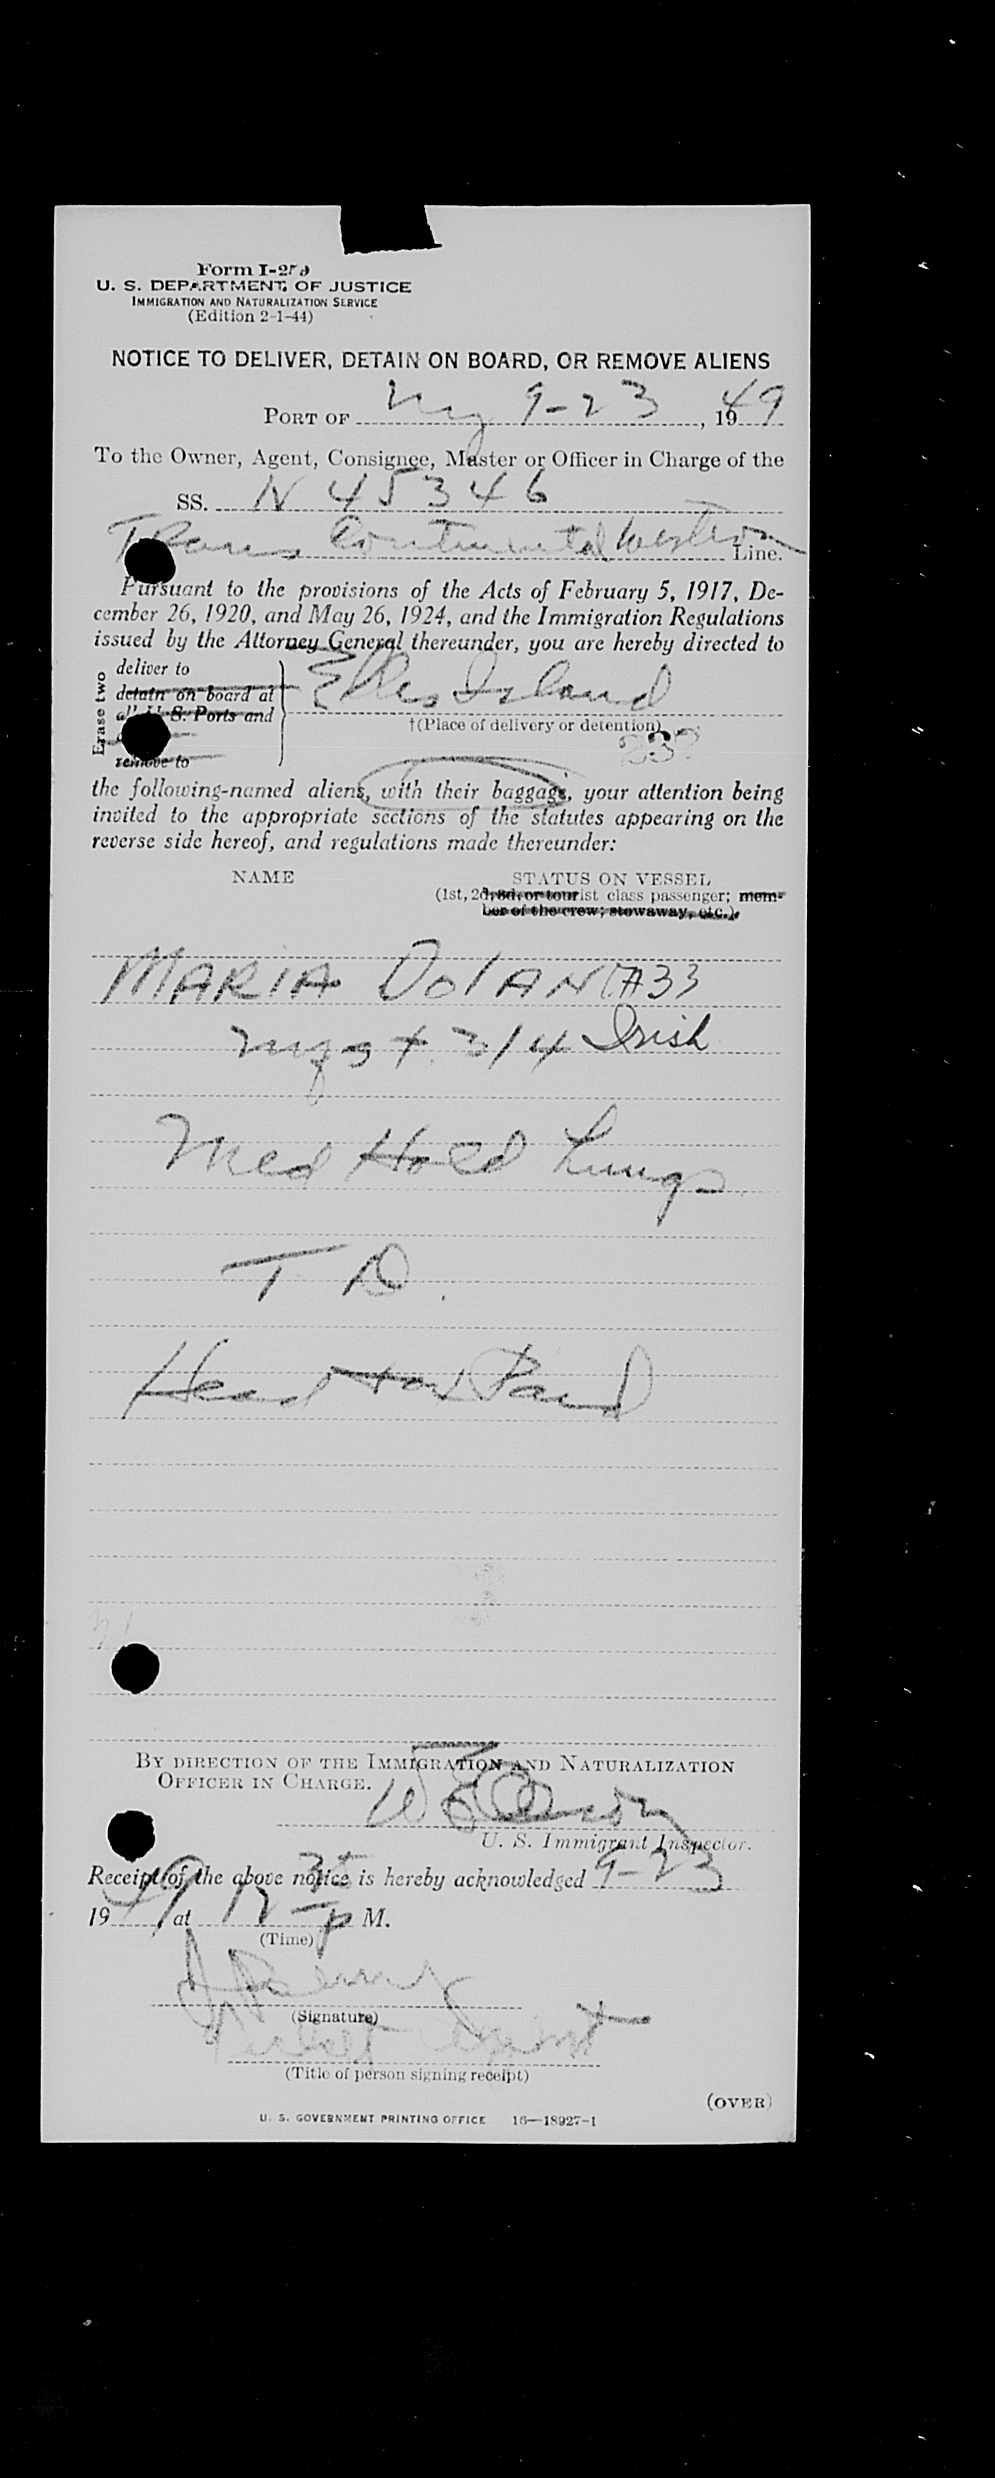 Form I-259
U. S. DEPARTMENT OF JUSTICE
IMMIGRATION AND NATURALIZATION SERVICE
(Edition 2-1-44)
NOTICE TO DELIVER, DETAIN ON BOARD, OR REMOVE ALIENS
PORT OF NY 9-23, 1949
To the Owner, Agent, Consignee, Master or Officer in Charge of the
SS. N 45346
Trans Continental Western Line.
Pursuant to the provisions of the Acts of February 5, 1917, De-
cember 26, 1920, and May 26, 1924, and the Immigration Regulations
issued by the Attorney General thereunder, you are hereby directed to
Erase two
deliver to
detain on board at
all U. S. Ports and
remove to
Ellis Island
†(Place of delivery or detention)
the following-named aliens, with their baggage, your attention being
invited to the appropriate sections of the statutes appearing on the
reverse side hereof, and regulations made thereunder:
NAME STATUS ON VESSEL
(1st, 2d, 3d, or tourist class passenger; mem-
ber of the crew; stowaway, etc.)
MARIA DolAN 33
3/4 Irish
Med Hold Lungs
T D.
Head Tax Paid
BY DIRECTION OF THE IMMIGRATION AND NATURALIZATION
OFFICER IN CHARGE.
U. S. Immigrant Inspector.
Receipt of the above notice is hereby acknowledged 9-23
1949, at 12 35 p M.
(Time)
(Signature)
Ticket Agent
(Title of person signing receipt)
(OVER)
U. S. GOVERNMENT PRINTING OFFICE 16—18927-1